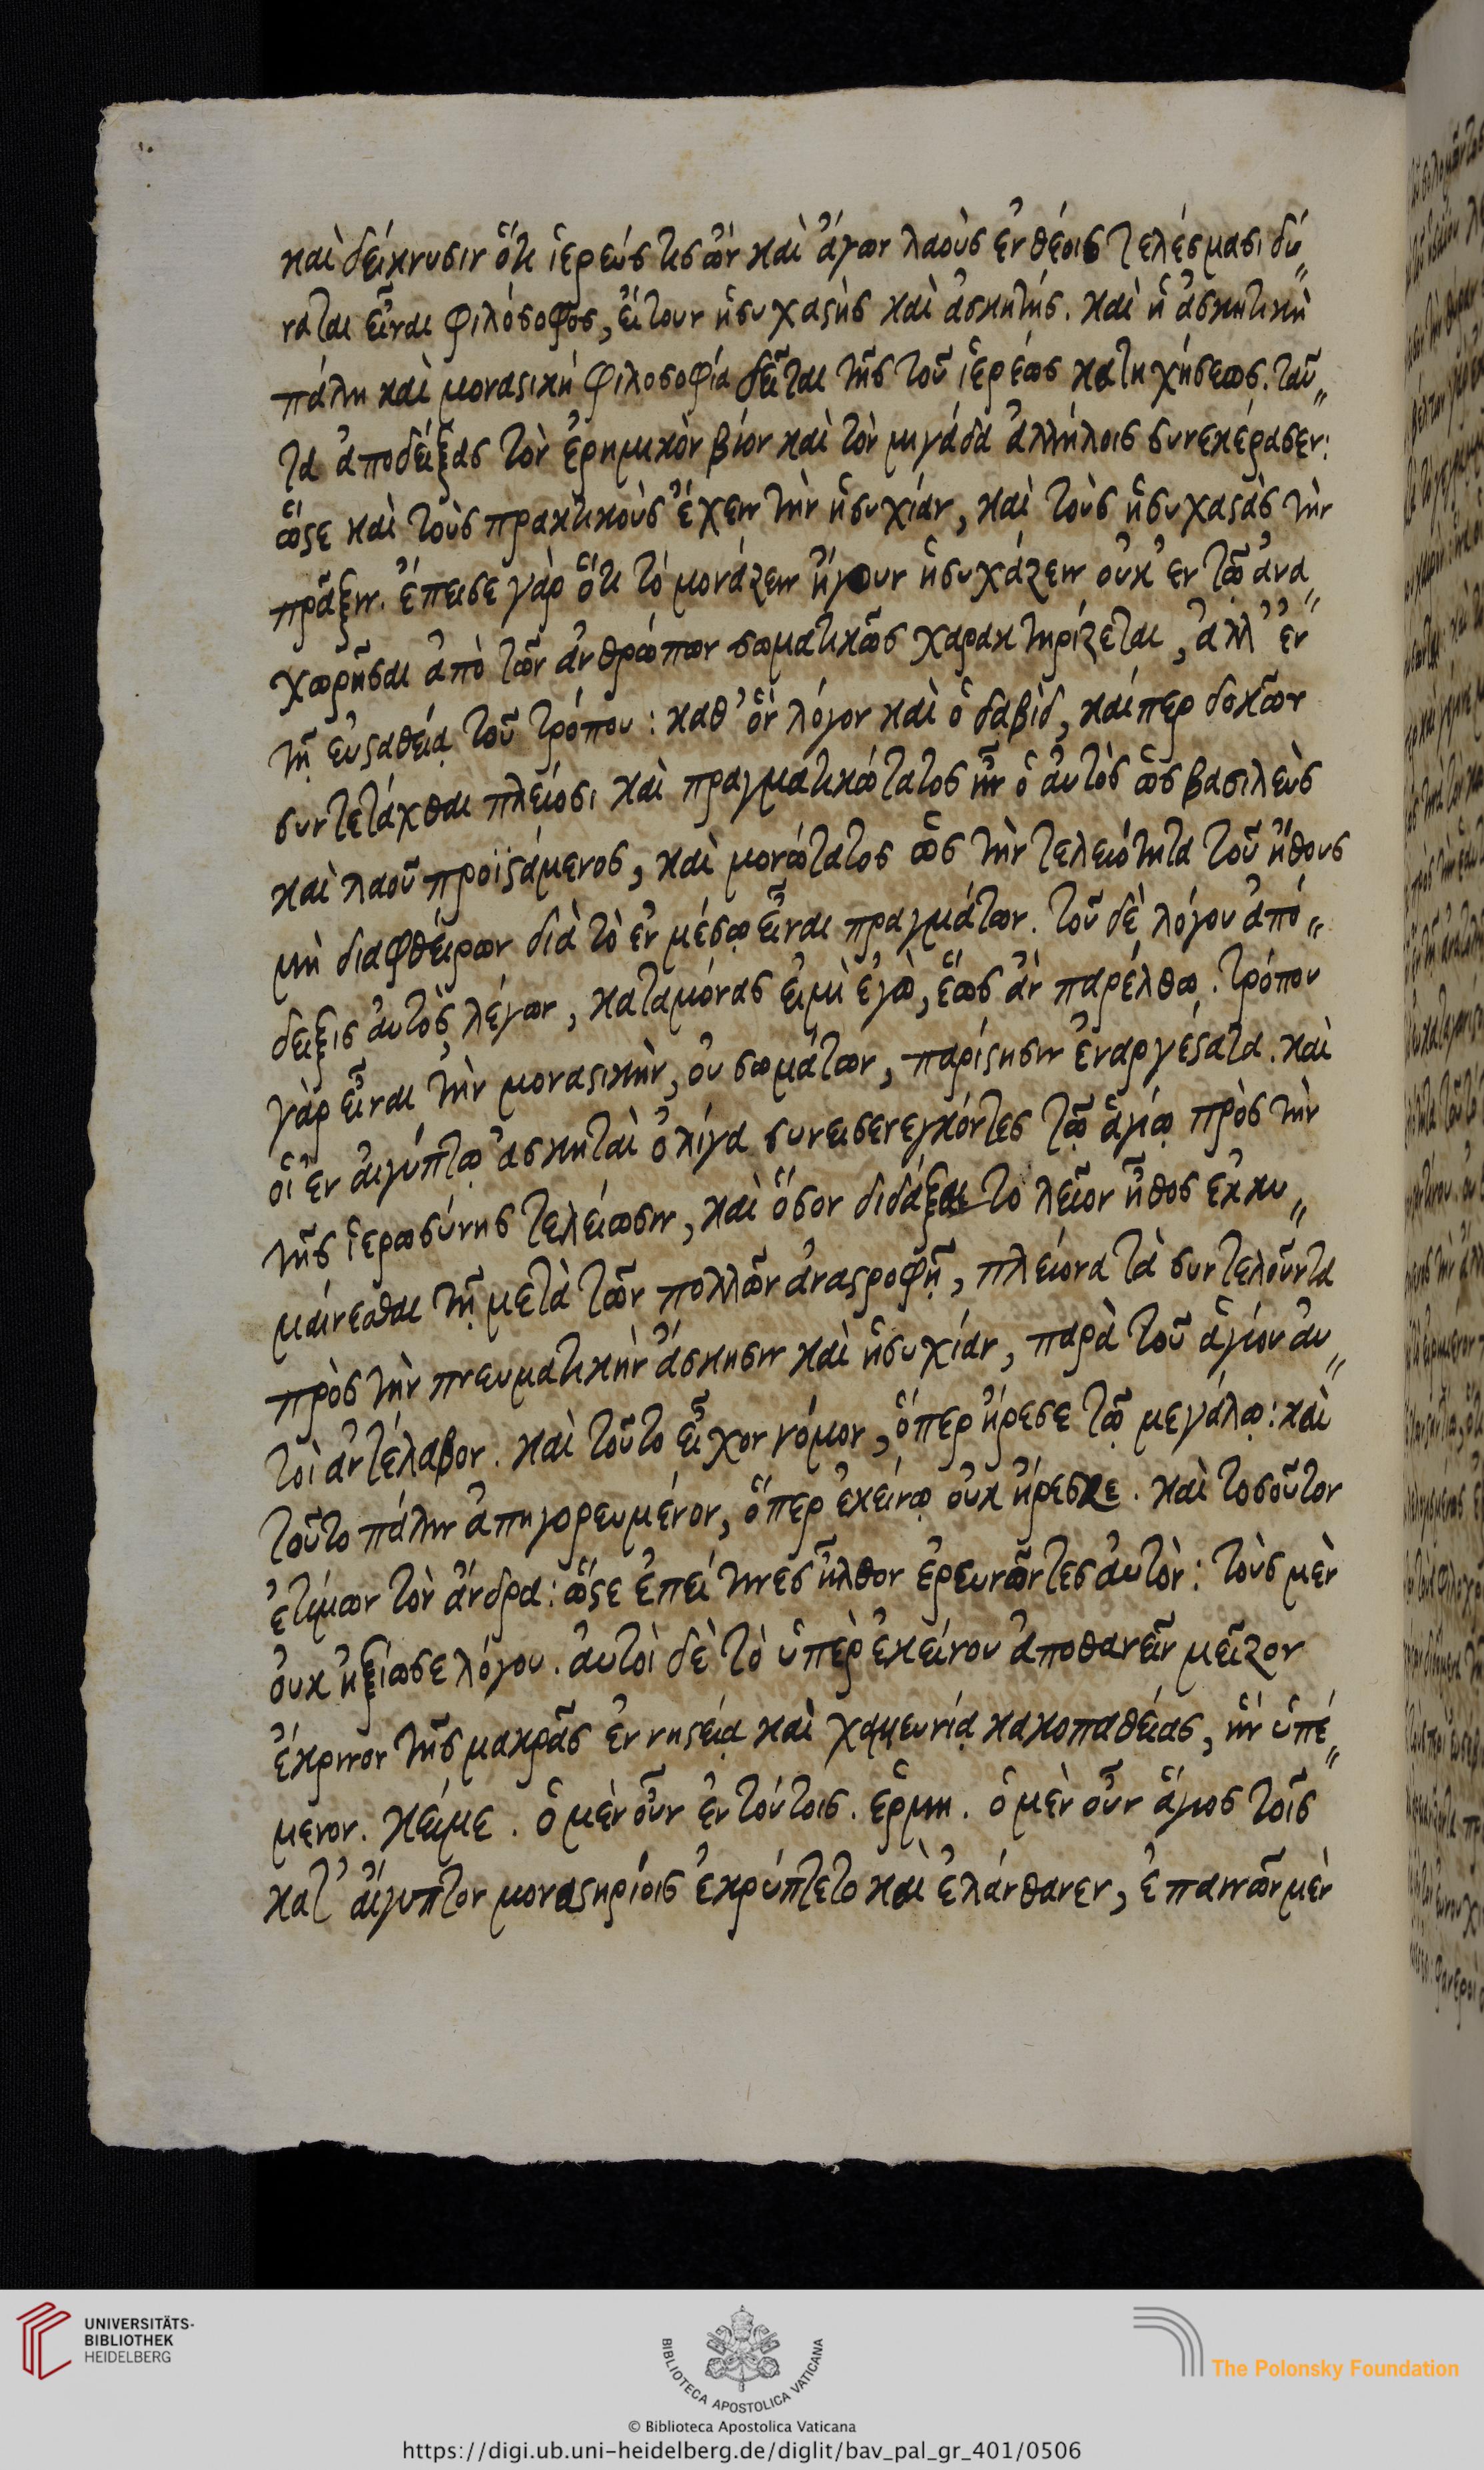 καὶ δείκνυσιν ὅτι ἱερεύς τις ὢν καὶ ἄγων λαοὺς ἐν θέοις τελέσμασι δύ„
ναται εἶναι φιλόσοφος, εἴτουν ἡσυχαστὴς καὶ ἀσκητής. καὶ ἡ ἀσκητικὴ
πάλη καὶ μοναστικὴ φιλοσοφία δεῖται τῆς τοῦ ἱερέως κατηχήσεως. ταῦ„
τα ἀποδείξας τὸν ἐρημικὸν βίον καὶ τὸν μιγάδα ἀλλήλοις συνεκέρασεν:
ὥστε καὶ τοὺς πρακτικοὺς ἔχειν τὴν ἡσυχίαν, καὶ τοὺς ἡσυχαστὰς τὴν
πρᾶξιν. ἔπεισε γὰρ ὅτι τὸ μονάζειν ἤγουν ἡσυχάζειν οὐκ ἐν τῷ ἀνα„
χωρῆσαι ἀπὸ τῶν ἀνθρώπων σωματικῶς χαρακτηρίζεται, ἀλλ' ἐν
τῇ εὐσταθείᾳ τοῦ τρόπου: καθ' ὃν λόγον καὶ ὁ δαβὶδ, καίπερ δοκῶν
συντετάχθαι πλείοσι καὶ πραγματικώτατος ἦν ὁ αὐτὸς ὡς βασιλεὺς
καὶ λαοῦ προϊστάμενος, καὶ μονώτατος ὡς τὴν τελειότητα τοῦ ἤθους
μὴ διαφθείρων διὰ τὸ ἐν μέσῳ εἶναι πραγμάτων. τοῦ δὲ λόγου ἀπό„
δειξις αὐτὸς λέγων, καταμόνας εἰμὶ ἐγὼ, ἕως ἂν παρέλθω. τρόπου
γὰρ εἶναι τὴν μοναστικὴν, οὐ σωμάτων, παρίστησιν ἐναργέστατα. καὶ
οἱ ἐν αἰγύπτῳ ἀσκηταὶ ὀλίγα συνεισενεγκόντες τῷ ἁγίῳ πρὸς τὴν
τῆς ἱερωσύνης τελείωσιν, καὶ ὅσον διδάξαι τὸ λεῖον ἦθος ἐκκυ„
μαίνεσθαι τῇ μετὰ τῶν πολλῶν ἀναστροφῇ, πλείονα τὰ συντελοῦντα
πρὸς τὴν πνευματικὴν ἄσκησιν καὶ ἡσυχίαν, παρὰ τοῦ ἁγίου αὐ„
τοὶ ἀντέλαβον. καὶ τοῦτο εἶχον νόμον, ὅπερ ἤρεσε τῷ μεγάλῳ: καὶ
τοῦτο πάλιν ἀπηγορευμένον, ὅπερ ἐκείνῳ οὐκ ἤρεσκε. καὶ τοσοῦτον
ἐτίμων τὸν ἄνδρα: ὥστε ἐπεί τινες ἦλθον ἐρευνῶντες αὐτὸν: τοὺς μὲν
οὐκ ἠξίωσε λόγου. αὐτοὶ δὲ τὸ ὑπὲρ ἐκείνου ἀποθανεῖν μεῖζον
ἔκρινον τῆς μακρᾶς ἐν νηστείᾳ καὶ χαμευνίᾳ κακοπαθείας, ἣν ὑπέ„
μενον. κείμε. ὁ μὲν οὖν ἐν τούτοις. ἑρμη. ὁ μὲν οὖν ἅγιος τοῖς
κατ' αἴγυπτον μοναστηρίοις ἐκρύπτετο καὶ ἐλάνθανεν, ἐπαινῶν μὲν
UNIVERSITÄTS-
BIBLIOTHEK
HEIDELBERG
BIBLIOTECA APOSTOLICA VATICANA
The Polonsky Foundation
© Biblioteca Apostolica Vaticana
https://digi.ub.uni-heidelberg.de/diglit/bav_pal_gr_401/0506